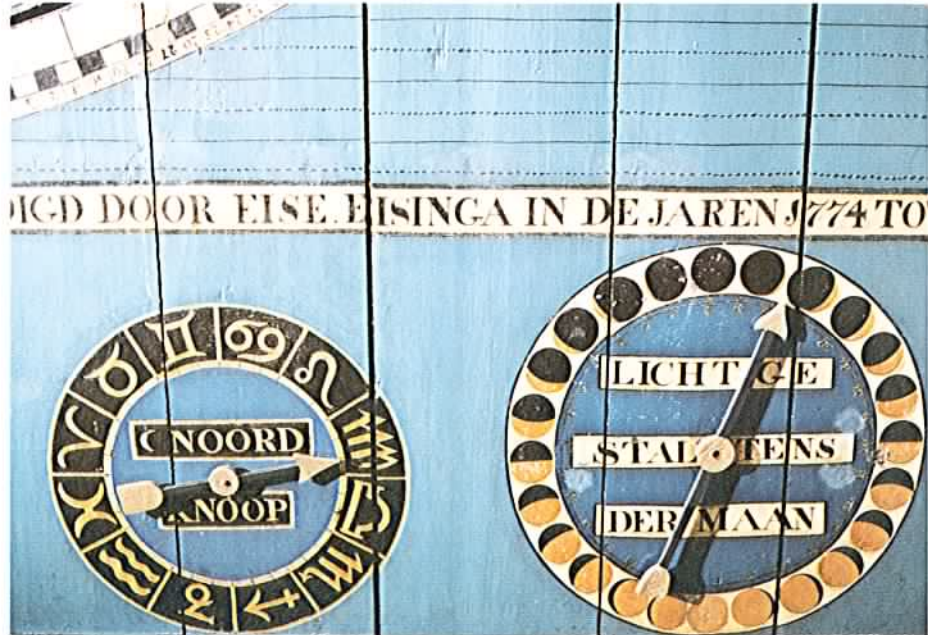 IGD DOOR EISE EISINGA IN DE JAREN 1774 TO
NOORD
KNOOP
LICHT GE
STALTENS
DER MAAN